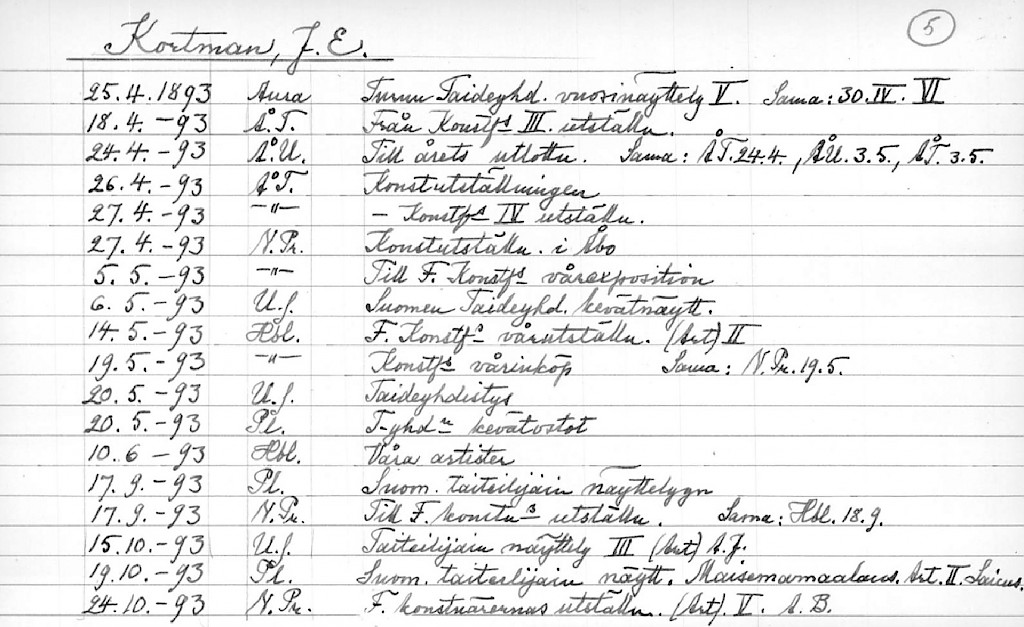 Kortman, J. E.
5
25.4.1893 Aura Turun Taideyhd. vuosinäyttely V. Sama: 30.IV. VI
18.4.-93 Å.T. Från Konstfs III. utställn.
24.4.-93 Å.U. Till årets utlottn. Sama: ÅT. 24.4., ÅU. 3.5., ÅT. 3.5.
26.4.-93 Å.T. Konstutställningen
27.4.-93 -"- - Konstfs IV utställn.
27.4.-93 N.Pr. Konstutställn. i Åbo
5.5.-93 -"- Till F. Konstfs vårexposition
6.5.-93 U.S. Suomen Taideyhd. kevätnäytt.
14.5.-93 Hbl. F. Konstfs vårutställn. (Art) II
19.5.-93 -"- Konstfs vårinköp Sama: N.Pr. 19.5.
20.5.-93 U.S. Taideyhdistys
20.5.-93 Pl. T-yhdn kevätostot
10.6-93 Hbl. Våra artister
17.9.-93 Pl. Suom. taiteilijain näyttelyyn
17.9.-93 N.Pr. Till F. konstns utställn. Sama: Hbl. 18.9.
15.10.-93 U.S. Taiteilijain näyttely III (Art) A.J.
19.10.-93 Pl. Suom. taiteilijain näytt. Maisemamaalaus. Art. II.
24.10.-93 N.Pr. F. konstnärernas utställn. (Art). V. A.B.